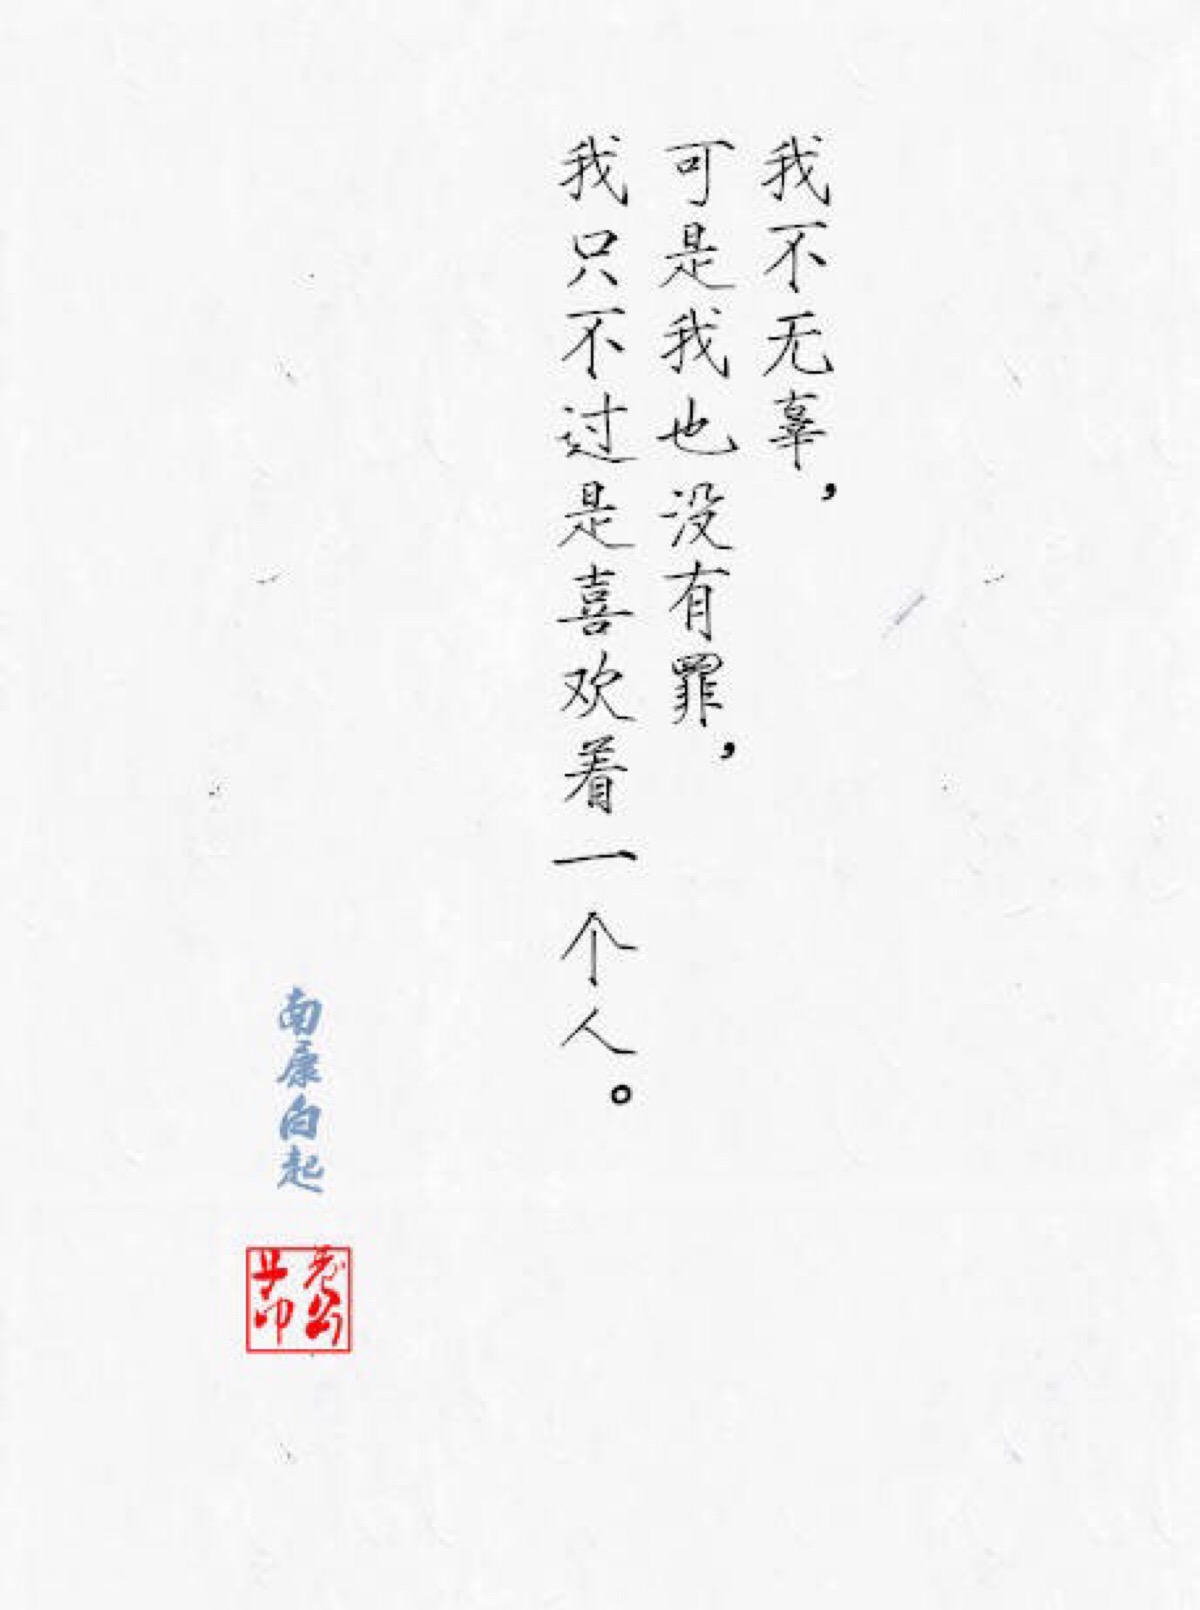 我不无辜，
可是我也没有罪，
我只不过是喜欢着一个人。
南康白起